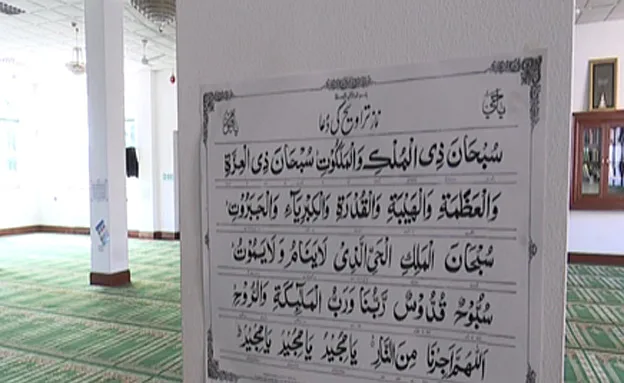 نماز تراویح کی دعا
سُبْحَانَ ذِی الْمُلْكِ وَالْمَلَكُوْتِ سُبْحَانَ ذِی الْعِزَّةِ
وَالْعَظَمَةِ وَالْهَيْبَةِ وَالْقُدْرَةِ وَالْكِبْرِيَآءِ وَالْجَبَرُوْتِ
سُبْحَانَ الْمَلِكِ الْحَیِّ الَّذِیْ لَا يَنَامُ وَلَا يَمُوْتُ
سُبُّوْحٌ قُدُّوْسٌ رَبُّنَا وَرَبُّ الْمَلٰٓئِكَةِ وَالرُّوْحِ
اَللّٰهُمَّ اَجِرْنَا مِنَ النَّارِ يَا مُجِيْرُ يَا مُجِيْرُ يَا مُجِيْرُ